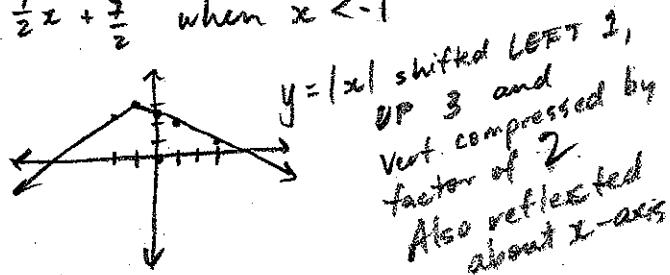 1/2 x + 7/2 when x < -1
y = |x| shifted LEFT 1,
UP 3 and
Vert. compressed by
factor of 2
Also reflected
about x-axis